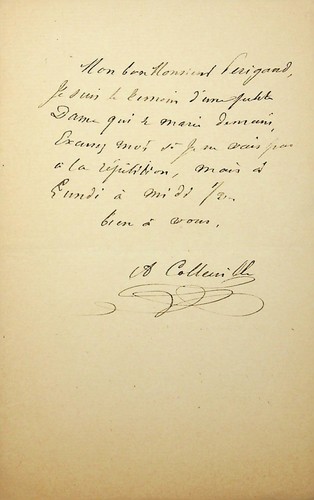 Mon bon Monsieur Perigaud,
Je suis le temoin d'une petite
Dame qui se marie demain,
Excusez moi si Je ne vais pas
à la répétition, mais à
Lundi à midi 1/2
bien à vous,
A Colleuille